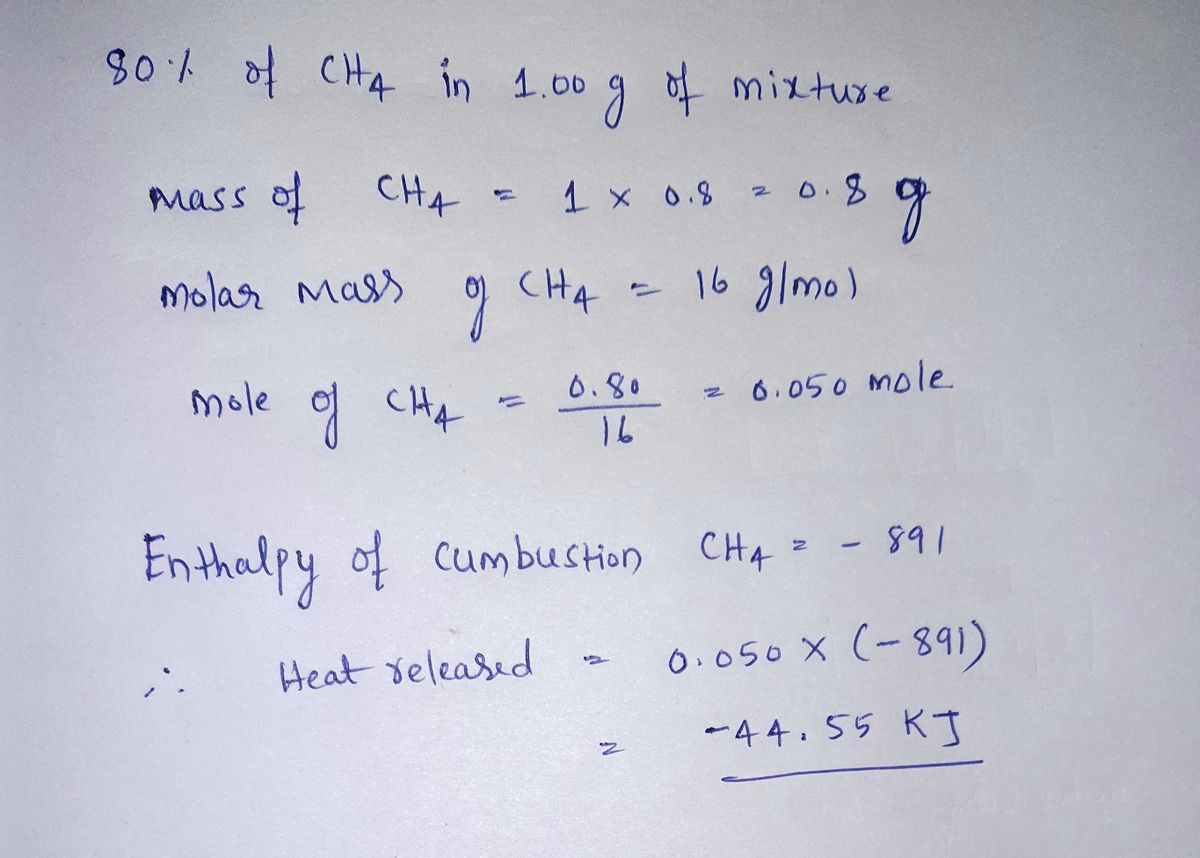 80% of CH4 in 1.00 g of mixture
mass of CH4 = 1 x 0.8 = 0.8 g
molar mass of CH4 = 16 g/mol
mole of CH4 = 0.80/16 = 0.050 mole
Enthalpy of cumbustion CH4 = - 891
∴ Heat released = 0.050 x (-891)
= -44.55 KJ